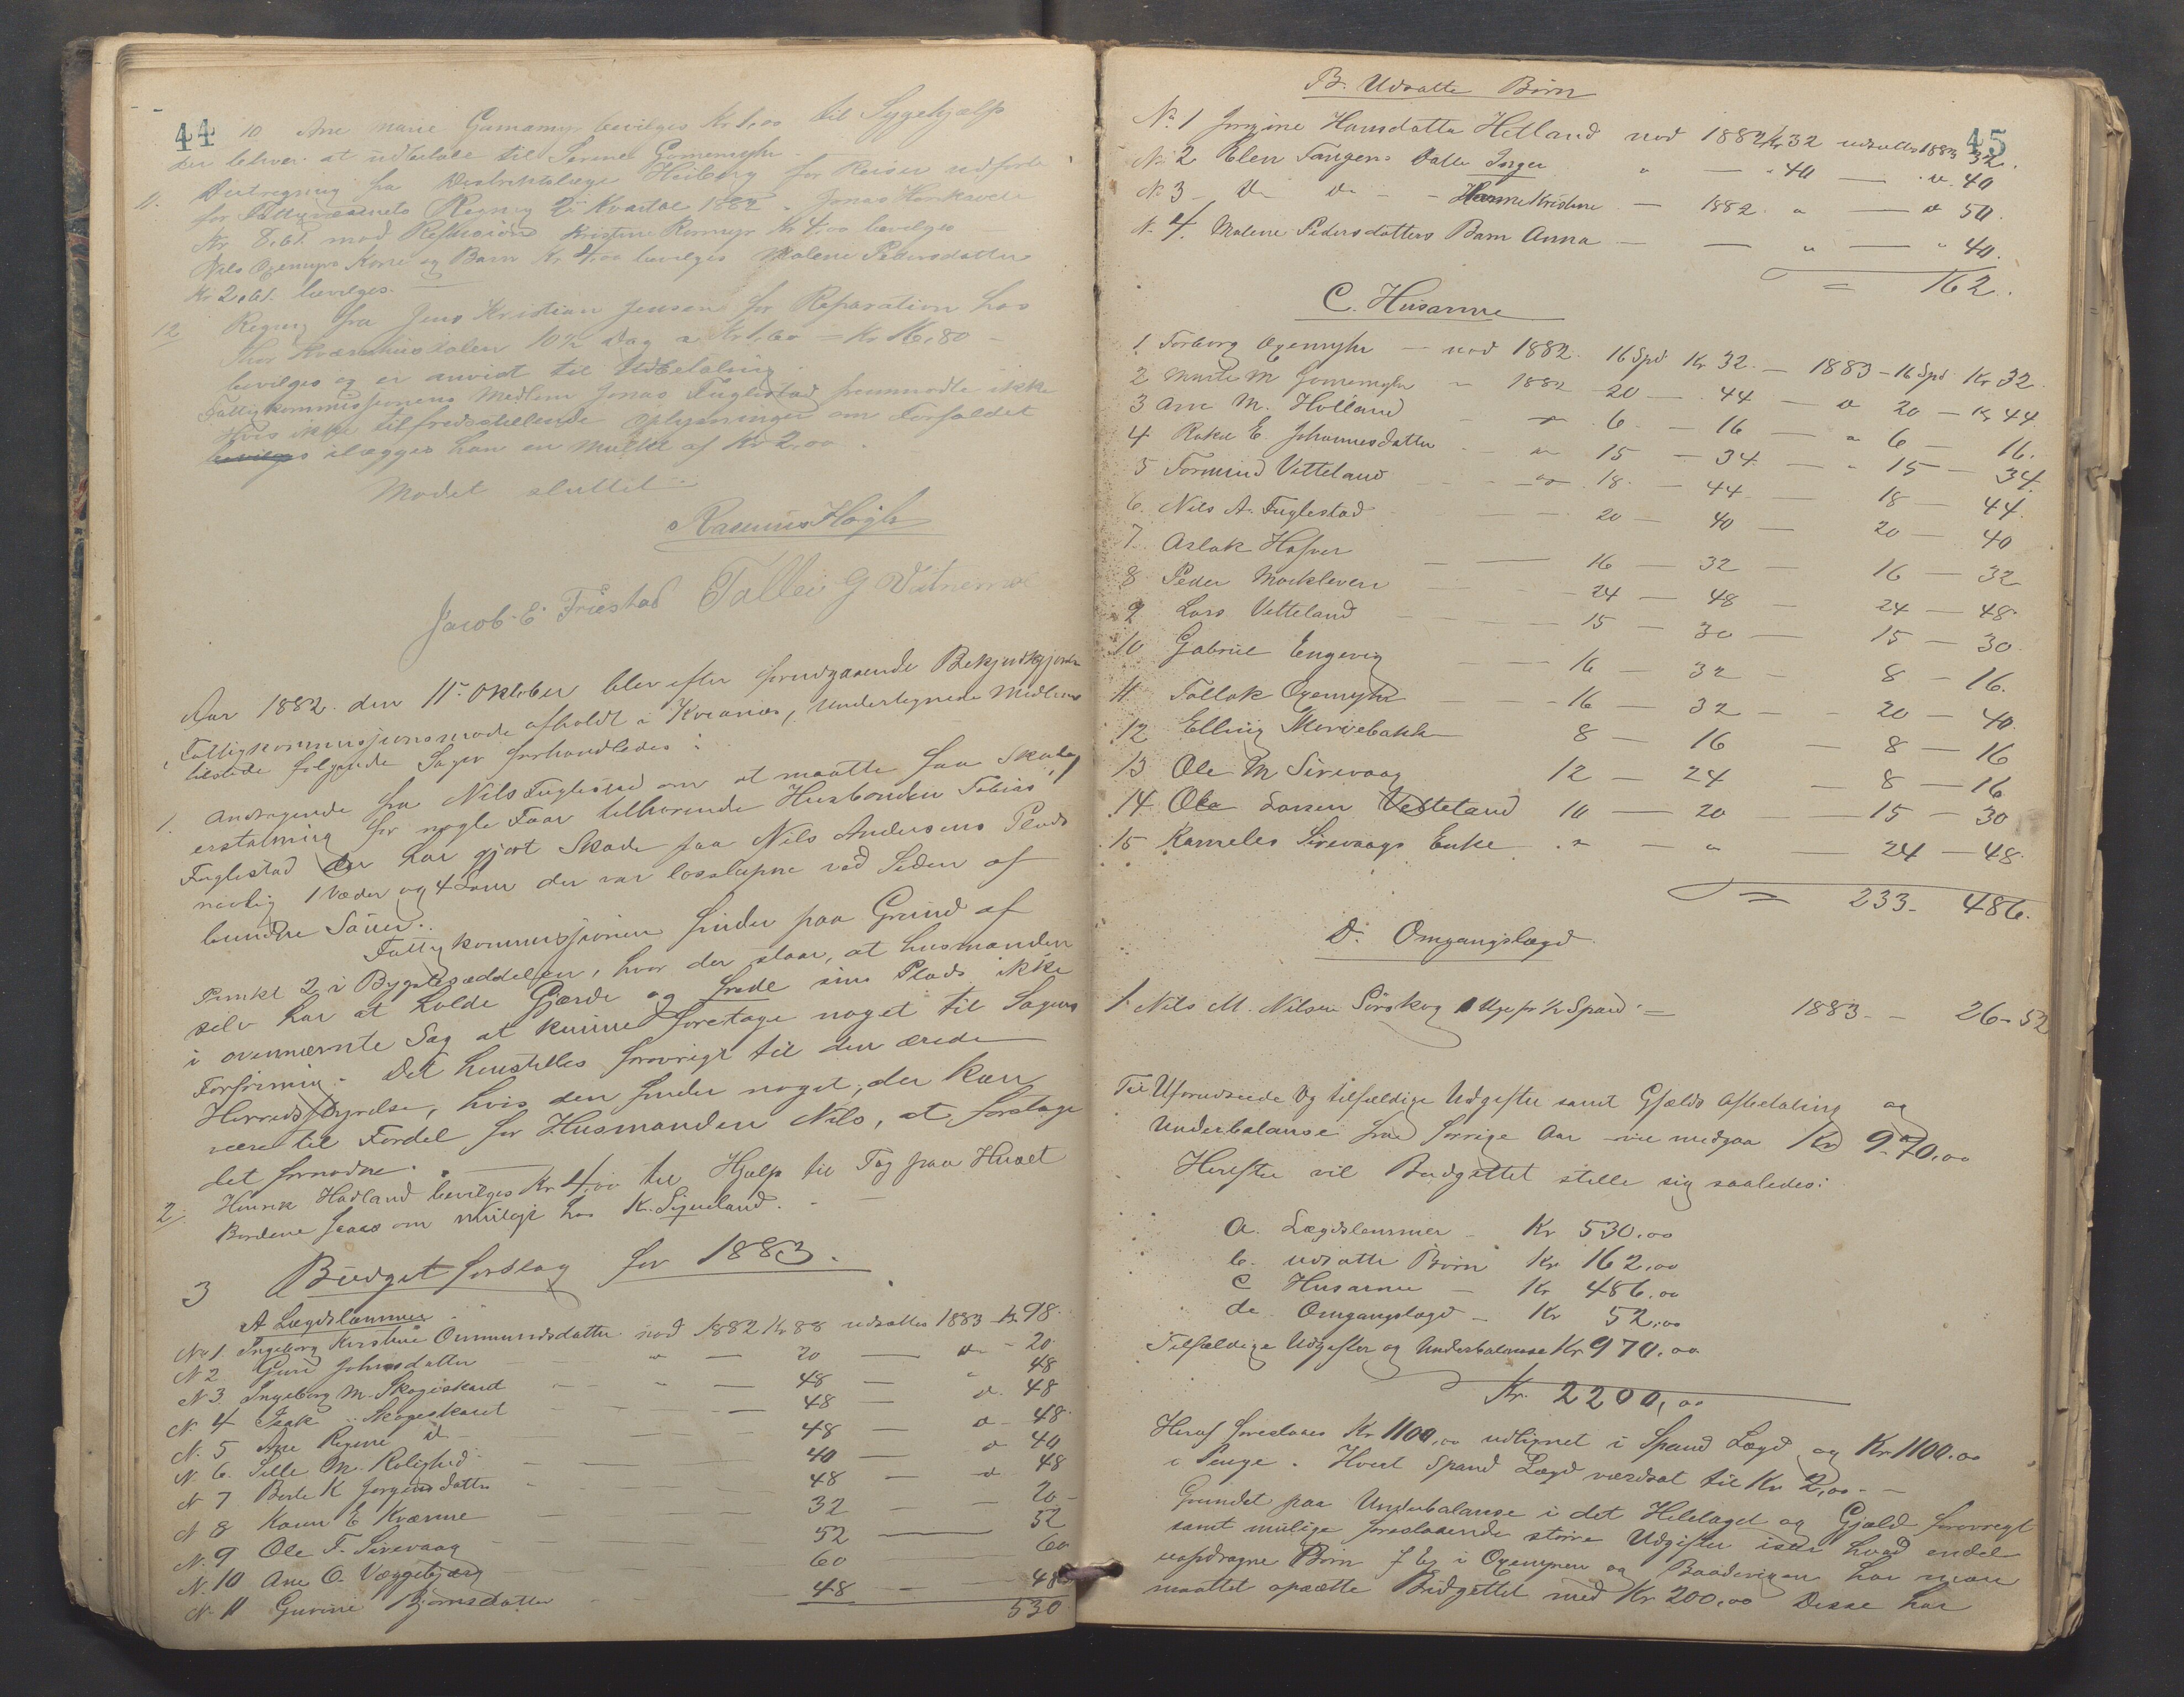 44
10 Ane Marie Gumamyr bevilges Kr 1,00 til Sygehjælp
der bliver at udbetale til Gomemyhr
11. fra Distriktslæge Heiberg for Reiser udførte
for Fattigvæsenets Regning 2t Kvartal 1882. Jonas
Kr 8,61 mod Refusion Kristine Kr 4,00 bevilges
Nils Oxemyrs Kone og Barn Kr 4,00 bevilges Malene Pedersdatter
Kr 2,61 bevilges.
12 Regning fra Jens Kristian Jensen for Reparation hos
Thor Kvæmhusdalen 10½ Dag a Kr 1,60 = Kr 16,80
bevilges og er anvist til Udbetaling.
Fattigkommissionens Medlem Jonas Fuglestad fremmødte ikke
Hvis ikke tilfredsstillende Oplysninger om Forfaldet
ilægges han en Mulkt af Kr 2,00.
Mødet sluttet
Rasmus Høgh
Jacob E. Friestad Tollei G
Aar 1882 den 11te Oktober blev efter forudgaaende Bekjendtgjørelse
Fattigkommissjonsmøde afholdt i Kvianes, undertegnede Medlemmer
tilstede følgende Sager forhandledes:
1. Andragende fra Nils Fuglestad om at maatte faa Skades
erstatning for nogle Faar tilhørende Husbonden Tobias
Fuglestad der har gjort Skade paa Nils Andersens Plads
navnlig 1 Væder og 4 Lam der var løsslupne ved Siden af
bundne Sauer.
Fattigkommissjonen finder paa Grund af
Punkt 2 i Bygselseddelen, hvor der staar, at husmanden
selv har at holde Gjærde og frede sin Plads ikke
i ovennævnte Sag at kunne foretage noget til Sagens
Forføining. Det henstilles forøvrigt til den ærede
Herredsstyrelse, hvis den finder noget, der kan
være til Fordel for Husmanden Nils, at foretage
det fornødne.
2. Henrik Hadland bevilges Kr. 4,00 til Hjælp til Tag paa Huset
Bordene faaes om muligt hos K. Sigveland.
3 Budgetforslag for 1883.
A Lægdslemmer
No 1. Ingeborg Kirstine Ommundsdatter nød 1882 Kr 88 udsattes 1883 Kr 98.
N 2 Guri Johnsdatter " — 20 — " - 20
N 3 Ingeborg M. Skogeskaret — 48 — " 48
N. 4 Isak Skogeskaret — 48 — a. 48
N. 5 Ane Regine d — 48 a - 48
N. 6. Sille M. Rolighed — 40 — a 40
N 7 Berte K Jørgensdatter — 48 — a. 48
N 8 Karen E Kværne — 32 — 20
N. 9 Ole T. Sirevaag — 52 — 52
N. 10 Ane O. Væggebjerg — 60 60
N. 11 Gurine Bjørnsdatter 48 — 48
530
45
B. Udsatte Børn
No. 1 Jorgine Hansdatter Hetland nød 1882 Kr 32 udsattes 1883 32.
No. 2 Elen Tangens Datter Inger " — " 40 — " a. 40
No. 3 - Do Do - Hanne Kristine — 1882. " — a 50.
N. 4. Malene Pedersdatters Barn Anna — — " — " 40.
= 162.
C. Husarme
1 Torborg Oxemyhr — nød 1882. 16 Spd Kr 32. — 1883 - 16 Spd Kr 32.
2 Marte M Gomemyhr — " 1882 - 20 — 44 — a 20 — Kr 44
3 Ane M. Holland — 6. - 16 — " 6 — 16.
4 Rakel E. Johannesdatter — " 15 — 34 — " 15 — 34
5 Tormod Vetteland — 18. - 44 — 18 — 44.
6. Nils A. Fuglestad — 20 — 40 — 20 — 40
7. Aslak Hafver — 16 — 32 — 16 — 32
8 Peder Mockleven — 24 — 48 — 24 — 48.
9 Lars Vetteland — 15 — 30 — 15 — 30.
10 Gabriel Engevig — 16 — 32 — 8 — 16.
11 Tollak Oxemyhr — 16 — 32 — 20 — 40.
12 Elling 8 — 16 — 8 — 16
13 Ole M Sirevaag 12 — 24 — 8 — 16
14 Ole Larsen Vetteland 10 — 20 — 15 — 30
15 Kanneles Sirevaags Enke " — " — 24 — 48.
= 233 - 486.
D. Omgangslægd
1. Nils M. Nilsen Sørskog 1 Uge pr ½ Spand = 1883 — 26 - 52
Til Uforudseede og tilfældige Udgifter samt Gjælds Afbetaling og
Underbalanse fra forrige Aar vil medgaa Kr 970,00
Herefter vil Budgettet stille sig saaledes:
a. Lægdslemmer — Kr 530,00
b. udsatte Børn Kr 162,00
c Husarme — Kr 486,00
de Omgangslægd — Kr 52,00
Tilfældige Udgifter og Underbalanse Kr 970,00
Kr. 2200,00
Heraf foreslaaes Kr 1100,00 udlignet i Spand Lægd og Kr 1100,00
i Penge. Hvert Spand Lægd værdsat til Kr 2,00. -
Grundet paa Underbalanse i det Heletaget og Gjæld forøvrigt
samt mulige forestaaende større Udgifter især hvad endel
uopdragne Børn f Ex i Oxemyren og Baadevigen har man
maattet opsætte Budgettet med Kr 200,00 Disse har